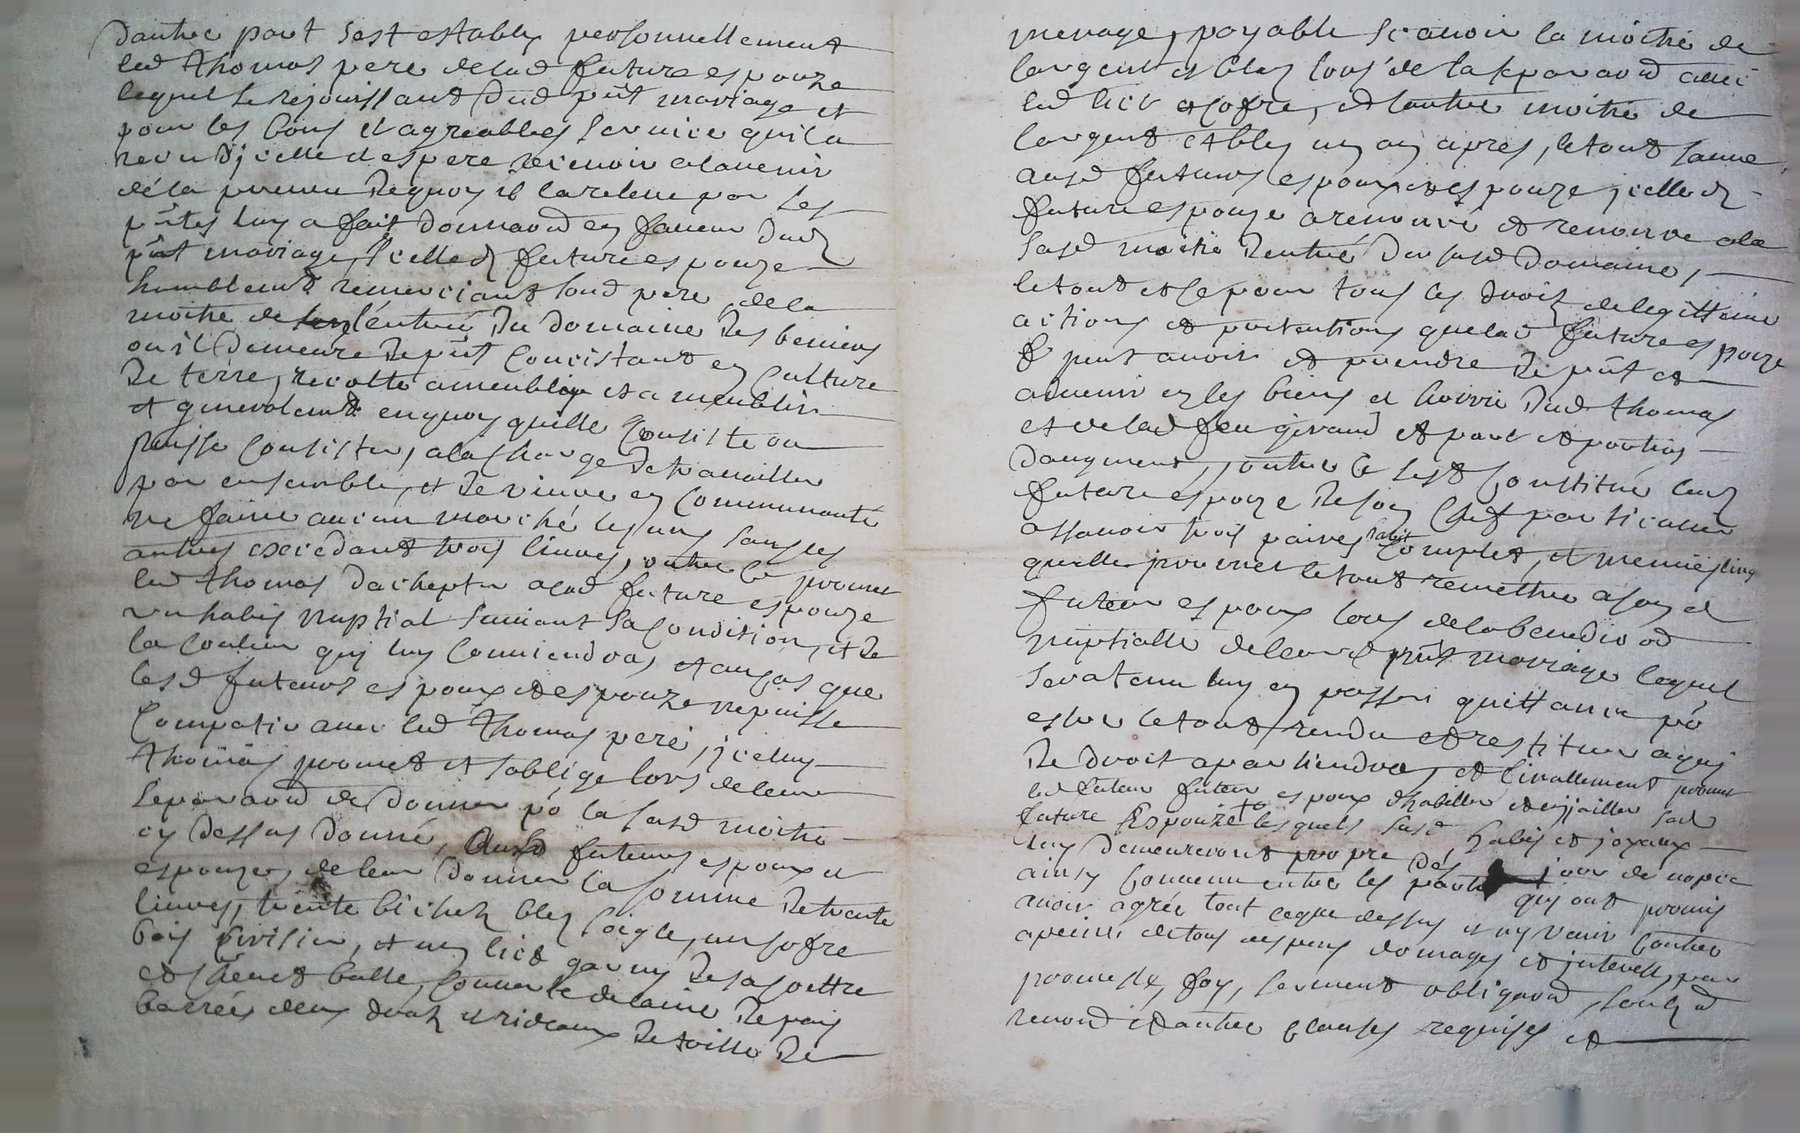 dautre part sest estably personnellement
led thomas pere delad future espouze
lequel se rejouissant dud pñt mariage et
pour les bons et agreables service quil a
receu djcelle et espere recevoir aladvenir
de la preuve dequoy il la releve par ses
pñtes luy a fait donnaõn en faveur dud
pñt mariage Jcelled future espouze
humblemt remerciant sond pere, de la
moitié de lentree du domaine des
ou il demeure de pñt consistant en culture
de terre, recolte ameublop et ameublir
et generalemt enquoy quelle consiste ou
puisse consister, ala charge de travailler
par ensemble, et de vivre en communauté
ne faire aucun marché les uns sans les
autres excedant trois livres, outre ce promet
led thomas dachepter alad future espouze
un habis nuptial suivant sa condition, et de
la couleur quj luy conviendra, et au cas que
lesd futeurs espoux et espouze ne puisse
compatir avec led thomas pere, jceluy
thomas promet et soblige lors de leur
separaõn de donner põ la susd moitié
cy dessus donné, ausd futeurs espoux et
espouze, de leur donner la somme de trente
livres, trente bichetz bled soigle, un cofre
bois, et un lict garny de sa coettre
et chevet balle, couverte de laine de pais
barrée deux drapz et rideaux de toille de
menage, payable scavoir la moitié de
largent et bled lors de la separaõn avec
led lict et cofre, et lautre moitié de
largent et bled un an apres, le tout
ausd futeurs espoux et espouze, jcelled
future espouze a renoncé et renonce ala
susd moitié dentrée du susd domaine,
le tout et ce pour tous les droitz de legittime
actions et pretentions que lad future espouze
peut avoir et prendre de pñt et
advenir en les biens et hoirie dud thomas
et de lad feu giraud et part et portion
daugment, outre ce sest constitué lad
future espouze de son chef particulier
assavoir trois paires habit complet, et menue linge
quelle promet le tout remettre a son d
futeur espoux lors de la benediõn
nuptialle de leur d pñt mariage lequel
sera tenu luy en passer quittance põ
estre le tout rendu et restitué a quj
de droit apartiendra, et finallement promet
led futeur espoux dhabiller et enjoailler sad
future Espouze lesquels susd habis et joyaux
luy demeureront propre des jour de nopce
ainsy convenu entre les parties quj ont promis
avoir agréé tout ceque dessus et ny venir contre
apeine de tous despens domages et interetz, par
promesse, foy, serment obligaõn, soubz
renonõ et autre clauses requises et